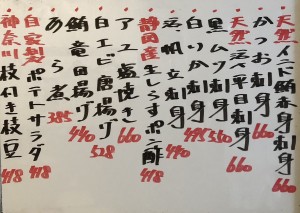 天然インド鮪赤身刺
かつお刺身 660
天然活〆平目刺身 660
黒ムツ刺身 550
白いか刺身 495
活帆立刺身 440
静岡産生しらすポン酢 418
アユ塩焼き 660
白エビ唐揚げ 528
鮪竜田揚げ 440
あら煮 385
自家製ポテトサラダ 418
神奈川枝付き枝豆 418